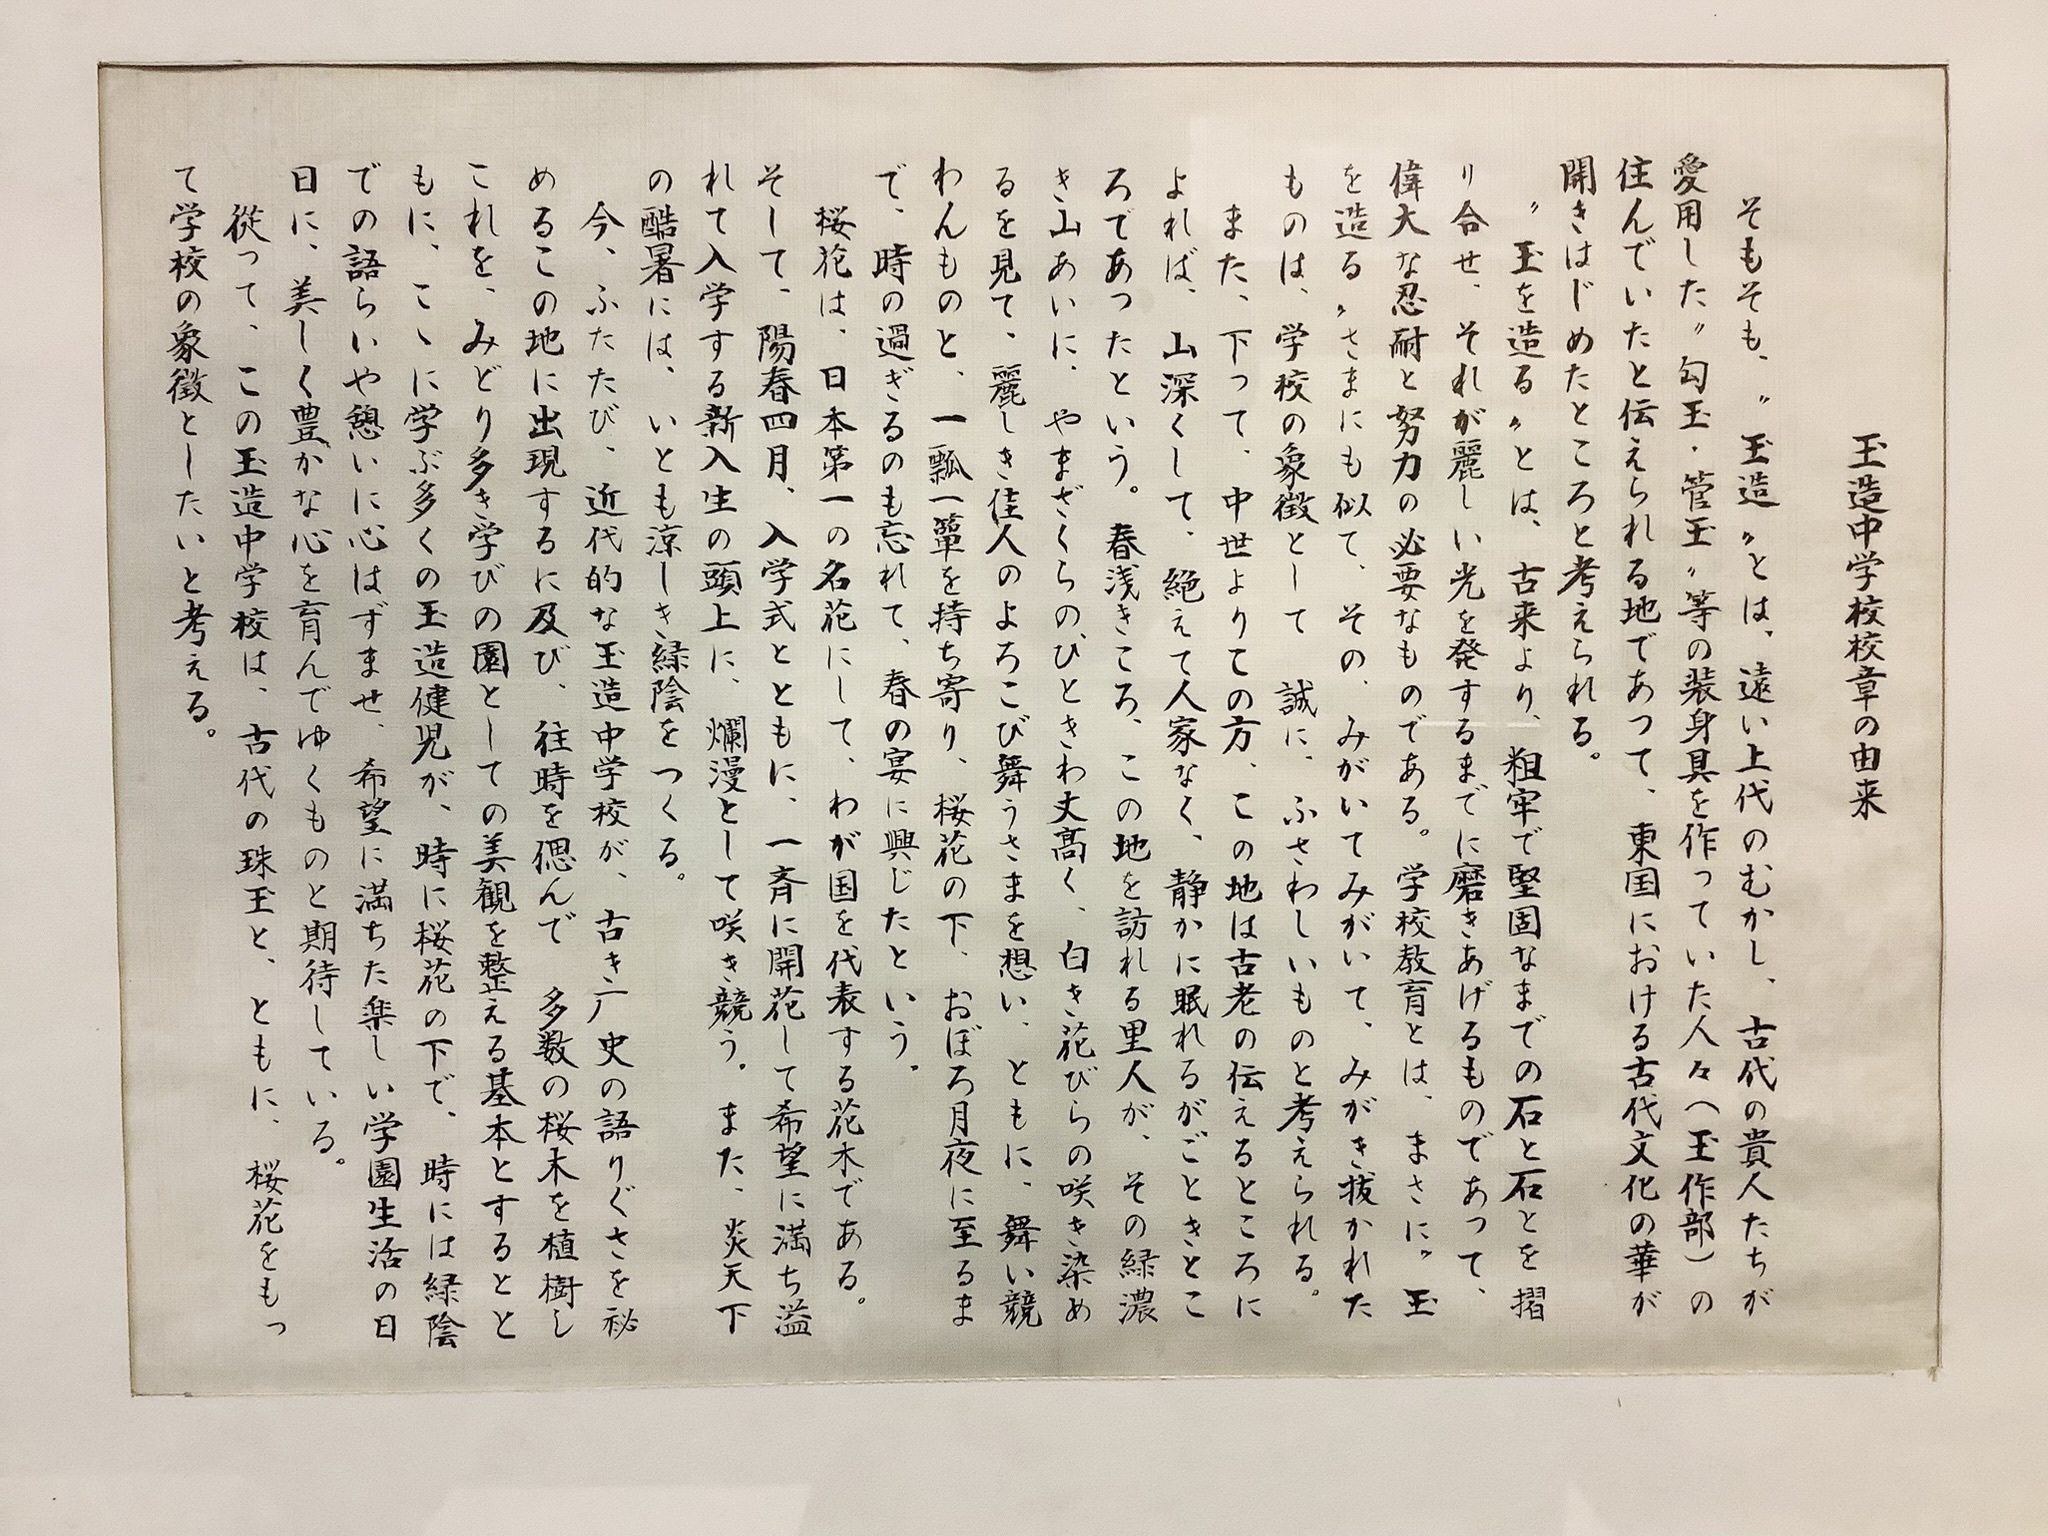 玉造中学校校章の由来
そもそも、〝玉造〟とは、遠い上代のむかし、古代の貴人たちが
愛用した〝勾玉・管玉〟等の装身具を作っていた人々（玉作部）の
住んでいたと伝えられる地であって、東国における古代文化の華が
開きはじめたところと考えられる。
〝玉を造る〟とは、古来より、粗牢で堅固なまでの石と石とを摺
り合せ、それが麗しい光を発するまでに磨きあげるものであって、
偉大な忍耐と努力の必要なものである。学校教育とは、まさに〝玉
を造る〟さまにも似て、その、みがいてみがいて、みがき抜かれた
ものは、学校の象徴として誠に、ふさわしいものと考えられる。
また、下って、中世よりての方、この地は古老の伝えるところに
よれば、山深くして、絶えて人家なく、静かに眠れるがごときとこ
ろであったという。春浅きころ、この地を訪れる里人が、その緑濃
き山あいに、やまざくらの、ひときわ丈高く、白き花びらの咲き染め
るを見て、麗しき佳人のよろこび舞うさまを想い、ともに、舞い競
わんものと、一瓢一簞を持ち寄り、桜花の下、おぼろ月夜に至るま
で、時の過ぎるのも忘れて、春の宴に興じたという。
桜花は、日本第一の名花にして、わが国を代表する花木である。
そして、陽春四月、入学式とともに、一斉に開花して希望に満ち溢
れて入学する新入生の頭上に、爛漫として咲き競う。また、炎天下
の酷暑には、いとも涼しき緑陰をつくる。
今、ふたたび、近代的な玉造中学校が、古き厂史の語りぐさを秘
めるこの地に出現するに及び、往時を偲んで多数の桜木を植樹し
これを、みどり多き学びの園としての美観を整える基本とするとと
もに、こゝに学ぶ多くの玉造健児が、時に桜花の下で、時には緑陰
での語らいや憩いに心はずませ、希望に満ちた楽しい学園生活の日
日に、美しく豊かな心を育んでゆくものと期待している。
従って、この玉造中学校は、古代の珠玉と、ともに、桜花をもっ
て学校の象徴としたいと考える。